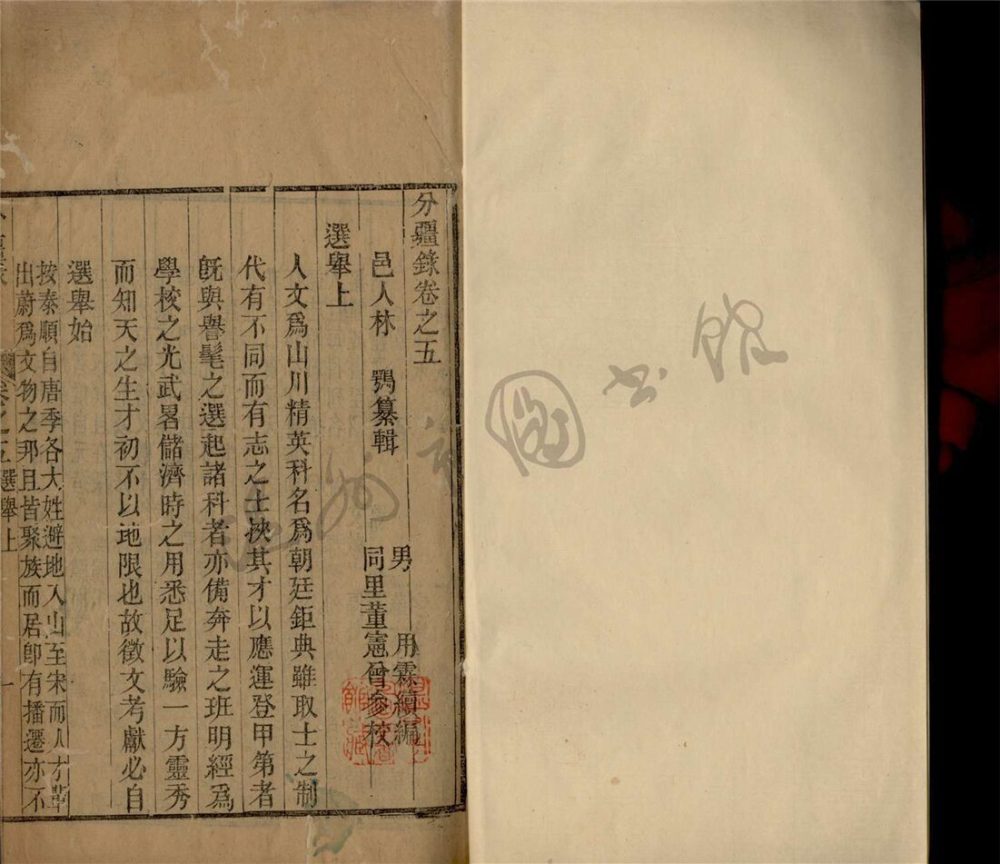 分疆錄卷之五
邑人林　鶚纂輯
男　用霖續編
同里董憲曾參校
選舉上
人文爲山川精英科名爲朝廷鉅典雖取士之制
代有不同而有志之士挾其才以應運登甲第者
旣與譽髦之選起諸科者亦備奔走之班明經爲
學校之光武畧儲濟時之用悉足以驗一方靈秀
而知天之生才初不以地限也故徵文考獻必自
選舉始
按泰順自唐季各大姓避地入山至宋而人才輩
出蔚爲文物之邦且皆聚族而居卽有播遷亦不
卷之五選舉上
一
圖書館